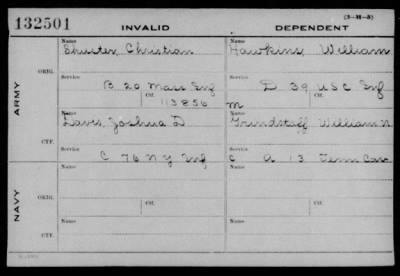 132501 INVALID DEPENDENT (3-H-3)
Name Name
Shuster, Christian Hawkins, William
ARMY
ORIG.
Service Service
B 20 Mass Inf D 39 USC Inf
Ctf. Ctf.
113856
m
Name Name
Davis, Joshua D Grindstaff William N
CTF.
Service Service
C 76 N Y Inf C A 13 Tenn Cav
NAVY
ORIG.
Name Ctf. Name Ctf.
CTF.
Name Name